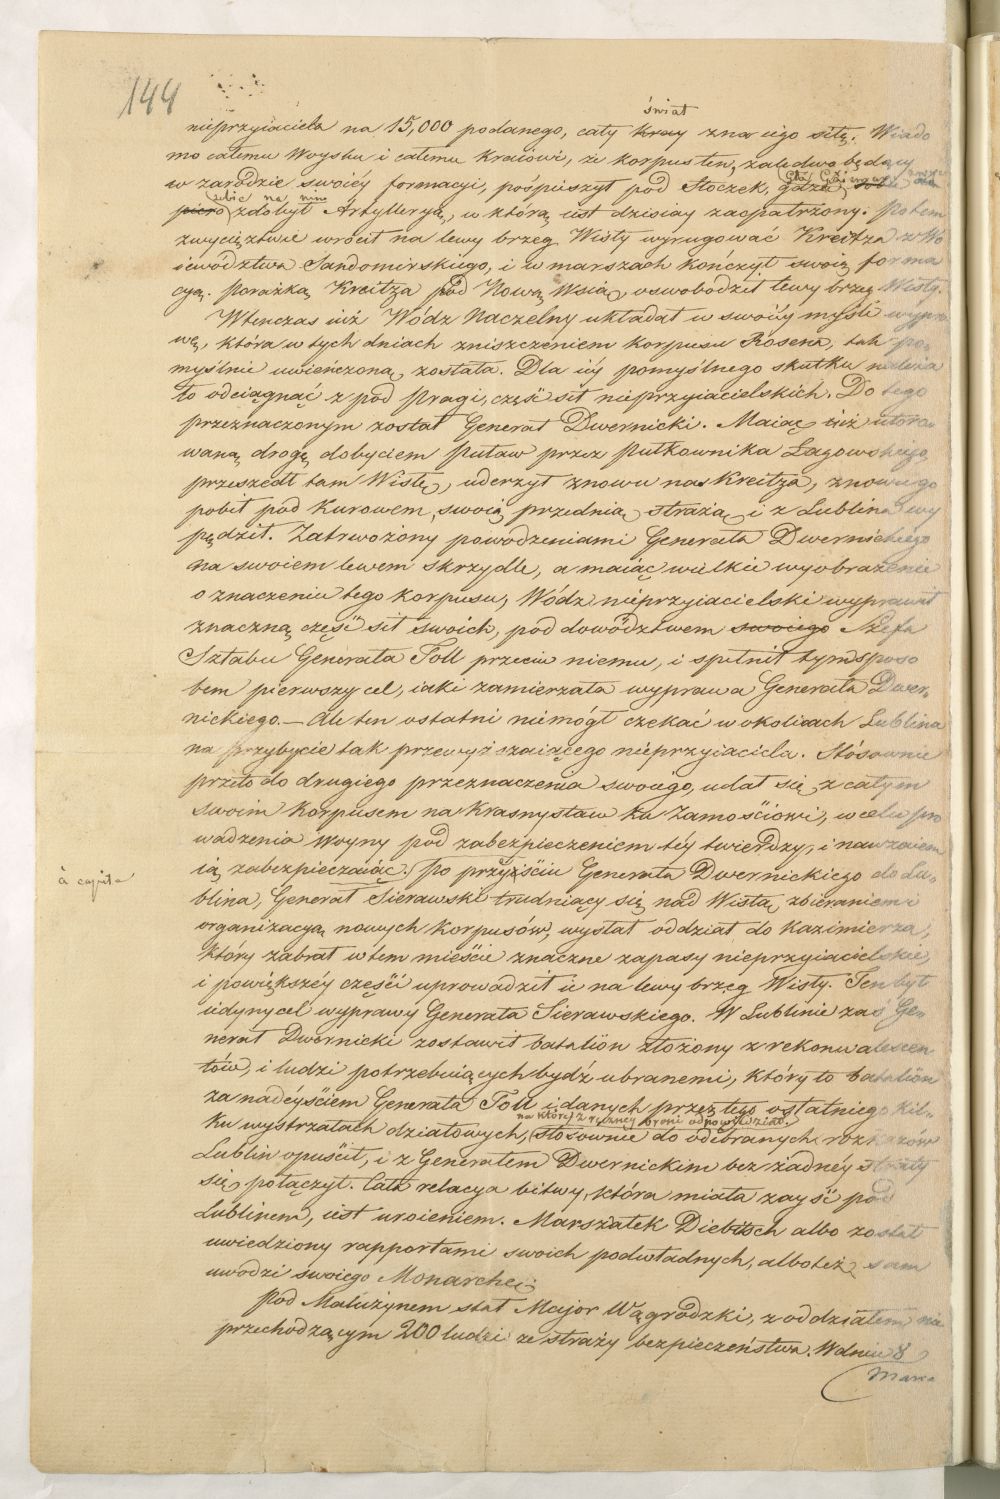 144
świat
nieprzyiaciela na 15,000 podanego, cały kray zna iego siłę. Wiado
mo całemu Woysku i całemu Kraiowi, że korpus ten, zaledwo będący
w zarodzie swoiéy formacyi, pośpieszył pod Stoczek, gdzie
zdobył Artylleryą, w którą iest dzisiay zaopatrzony: potem
zwycięztwie wrócił na lewy brzeg Wisły wyrugować Kreitza z Wo
iewództwa Sandomirskiego, i w marszach kończył swoią forma
cyą. Porażką Kreitza pod Nową Wsią, oswobodził lewy brzeg Wisły.
Wtenczas iuż Wódz Naczelny układał w swoiéy myśli wypra
wę, która w tych dniach zniszczeniem korpusu Rosena, tak po-
myślnie uwieńczoną została. Dla iéy pomyślnego skutku należa
ło odciągnąć z pod Pragi, część sił nieprzyiacielskich. Do tego
przeznaczonym został Generał Dwernicki. Maiąc iuż utoro-
waną drogę dobyciem Puław przez Pułkownika Łagowskiego,
przeszedł tam Wisłę, uderzył znowu na Kreitza, znowu go
pobił pod Kurowem, swoią przednią strażą, i z Lublina wy
pędził. Zatrwożony powodzeniami Generała Dwernickiego
na swoiem lewem skrzydle, a maiąc wielkie wyobrażenie
o znaczeniu tego korpusu, Wódz nieprzyiacielski wyprawił
znaczną część sił swoich, pod dowództwem swoiego Szefa
Sztabu Generała Toll przeciw niemu, i spełnił tym sposo
bem pierwszy cel, iaki zamierzała wyprawa Generała Dwer-
nickiego. — Ale ten ostatni niemógł czekać w okolicach Lublina
na przybycie tak przewyższaiącego nieprzyiaciela. Stósownie
przeto do drugiego przeznaczenia swoiego, udał się z całym
swoim korpusem na Krasnystaw ku Zamościowi, w celu pro
wadzenia woyny pod zabezpieczeniem téy twierdzy, i nawzaiem
ią zabezpieczaiąc. Po przyiściu Generała Dwernickiego do Lu-
à capite
blina, Generał Sierawski trudniący się nad Wisłą zbieraniem i
organizacyą nowych korpusów, wysłał oddział do Kazimierza,
który zabrał w tem mieście znaczne zapasy nieprzyiacielskie,
i powiększéy części uprowadził ie na lewy brzeg Wisły. Ten był
iedyny cel wyprawy Generała Sierawskiego. W Lublinie zaś Ge-
nerał Dwernicki zostawił batalion złożony z rekonwalescen
tów, i ludzi potrzebuiących bydź ubranemi, który to batalion
za nadeyściem Generała Toll i danych przez tego ostatniego kil-
na które z ręcznéy broni odpowiedział,
ku wystrzałach działowych, stósownie do odebranych rozkazów
Lublin opuścił, i z Generałem Dwernickim bez żadnéy straty
się połączył. Cała relacya bitwy, która miała zayść pod
Lublinem, iest uroieniem. Marszałek Diebitsch albo został
uwiedziony rapportami swoich podwładnych, albo też sam
uwodzi swoiego Monarchę.
Pod Małużynem stał Major Wągrodzki, z oddziałem nie
przechodzącym 200 ludzi ze straży bezpieczeństwa. W dniu 8
Marca